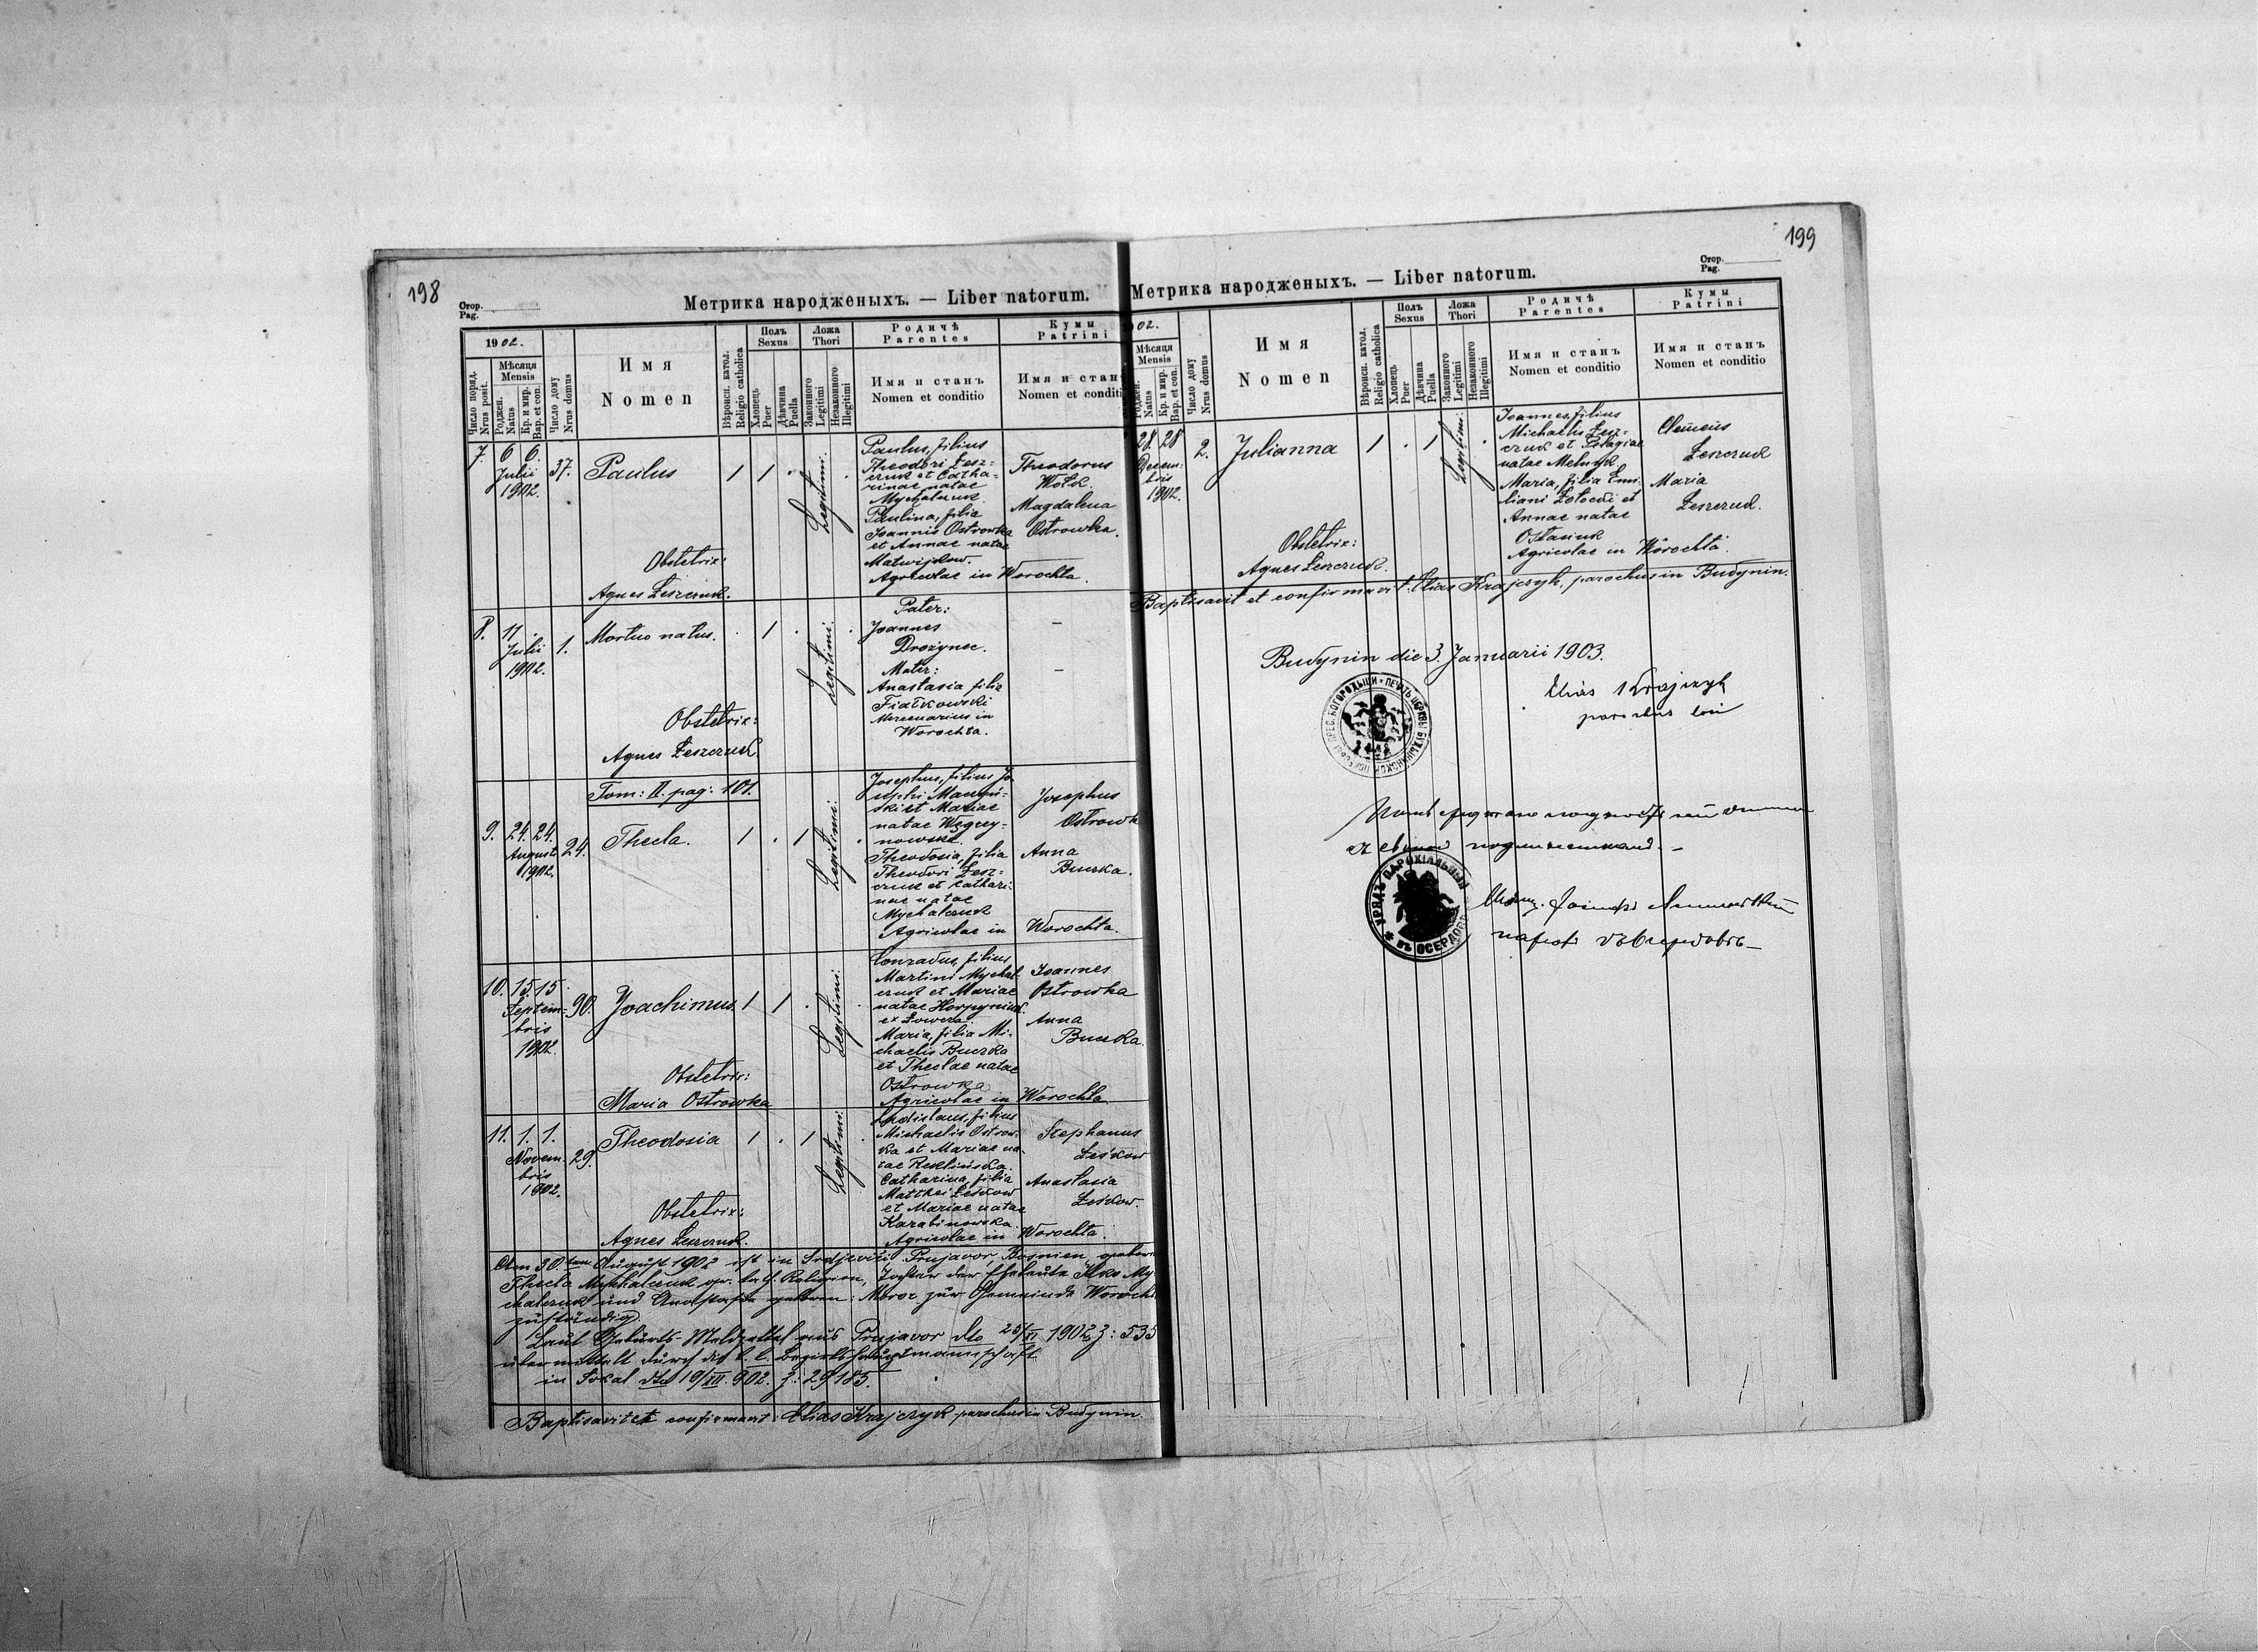 198
Стор.
Pag.
Метрика народженыхъ. — Liber natorum.
1902.
Число поряд.
Nrus posit.
Мѣсяця
Mensis
Роджен.
Natus
Кр. и мир.
Bap. et con.
Число дому
Nrus domus
Имя
Nomen
Вѣроисп. катол.
Religio catholica
Полъ
Sexus
Хлопець
Puer
Дѣвчина
Puella
Ложа
Thori
Законного
Legitimi
Незаконного
Illegitimi
Родичѣ
Parentes
Имя и станъ
Nomen et conditio
Кумы
Patrini
Имя и стан
Nomen et conditi
7. 6 6.
Julii
1902.
37.
Paulus
1 1 .
Legitimi.
Paulus, filius
Theodori Łesz=
czuk et Catha=
rinae natae
Mychalczuk.
Paulina, filia
Joannis Ostrowka
et Annae natae
Matwijkow.
Agricolae in Worochta.
Theodorus
Wołk.
Magdalena
Ostrowka.
Obstetrix:
Agnes Łeszczuk.
8. 11 .
Julii
1902.
1.
Mortuo natus.
. 1 .
Legitimi.
Pater:
Joannes
Drozynec.
Mater:
Anastasia filia
Fiałkowski
Mercenarius in
Worochta.
Obstetrix:
Agnes Łeszczuk.
Tom: II. pag: 101.
9. 24. 24.
Augusti
1902.
24.
Thecla.
1 . 1
Legitimi.
Josephus, filius Jo
sephi
ski et Mariae
natae Węgrzy=
nowska.
Theodosia, filia
Theodori Łesz=
czuk et Cathari=
nae natae
Mychalczuk
Agricolae in Worochta.
Josephus
Ostrowk
Anna
Buczka.
10. 15 15
Septem=
bris
1902.
90.
Joachimus.
1 1 .
Legitimi.
Conradus, filius
Martini Mychal=
czuk et Mariae
natae Horpyniuk
ex Łowcza.
Maria, filia Mi=
chaelis Buczka
et Theclae natae
Ostrowka
Agricolae in Worochta
Joannes
Ostrowka
Anna
Buczka.
Obstetrix:
Maria Ostrowka
11. 1. 1.
Novem=
bris
1902.
29.
Theodosia
1 . 1
Legitimi.
Ladislaus, filius
Michaelis Ostrow=
ka et Mariae na=
tae Reklińska.
Catharina, filia
Matthei Łeśkow
et Mariae natae
Karabinowska.
Agricolae in Worochta.
Stephanus
Łeśkow
Anastasia
Łeśkow.
Obstetrix:
Agnes Łeszczuk.
Am 30.ten August 1902 ist in Srdjevići Prnjavor, Bosnien, geboren
Thecla Mychalczuk gr. kath Religion, Tochter der Eheleute Ilko My=
chalczuk und Anastasia geboren: Moroz zur Gemeinde Woroch
zuständig.
Laut Geburts-Meldzettel aus Prnjavor dto 25/XI 1902 z: 535
übermittelt durch die k. k. Bezirkshauptmannschaft
in Sokal dto 19/XII. 902. z: 29185.
Baptisavit et confirmavit: Elias Krajczyk parochus in Budynin.
199
Стор.
Pag.
Метрика народженыхъ. — Liber natorum.
02.
Мѣсяця
Mensis
Роджен.
Natus
Кр. и мир.
Bap. et con.
Число дому
Nrus domus
Имя
Nomen
Вѣроисп. катол.
Religio catholica
Полъ
Sexus
Хлопець
Puer
Дѣвчина
Puella
Ложа
Thori
Законного
Legitimi
Незаконного
Illegitimi
Родичѣ
Parentes
Имя и станъ
Nomen et conditio
Кумы
Patrini
Имя и станъ
Nomen et conditio
28. 28
Decem=
bris
1902.
2.
Julianna
1 . 1
Legitimi.
Joannes, filius
Michaelis Łesz=
czuk et Pelagiae
natae Melnyk
Maria, filia Emi=
liani Zołocki et
Annae natae
Ostasiuk
Agricolae in Worochta.
Clemens
Łeszczuk
Maria
Łeszczuk.
Obstetrix:
Agnes Łeszczuk.
Baptisavit et confirmavit: Elias Krajczyk, parochus in Budynin.
Budynin die 3. Januarii 1903.
Elias Krajczyk
parochus loci
УРЯДЪ ПАРОХІАЛЬНЫЙ
ВЪ ОСЕРДОВѢ